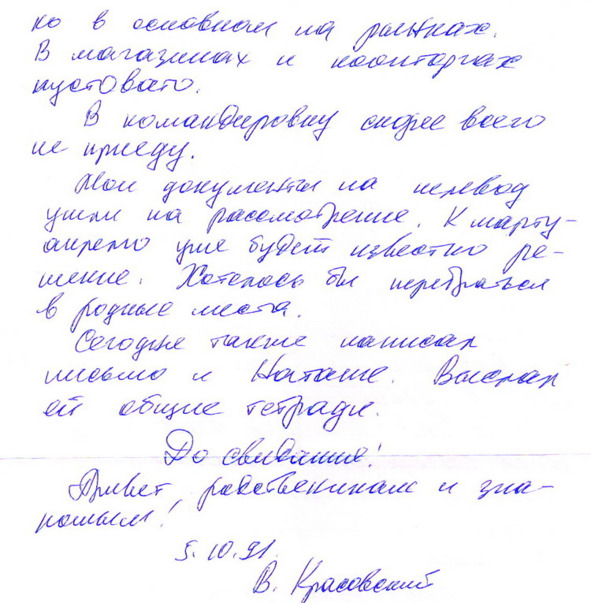 ко в основном на рынках.
В магазинах и коопторгах
пустовато.
В командировку скорее всего
не приеду.
Мои документы на перевод
ушли на рассмотрение. К марту-
апрелю уже будет известно ре-
шение. Хотелось бы перебраться
в родные места.
Сегодня также написал
письмо и Наташе. Выслал
ей общие тетради.
До свидания!
Привет родственникам и зна-
комым!
5.10.91.
В. Красовский